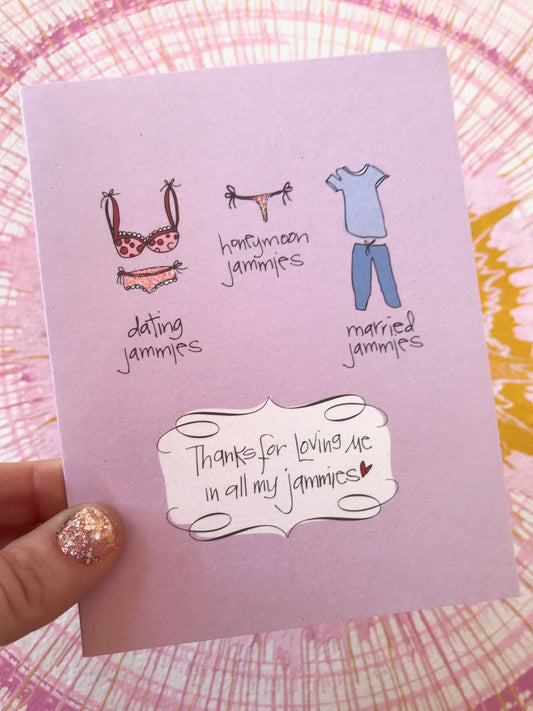 honeymoon
jammies
dating
jammies
married
jammies
Thanks for Loving Me
in all my jammies